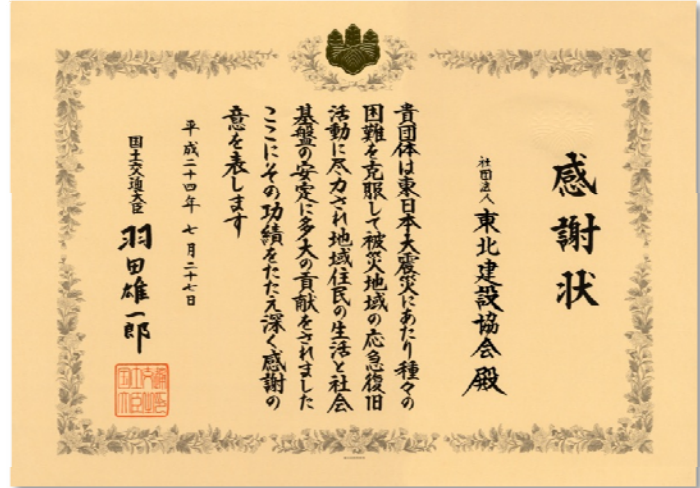 感謝状
社団法人 東北建設協会 殿
貴団体は東日本大震災にあたり種々の
困難を克服して被災地域の応急復旧
活動に尽力され地域住民の生活と社会
基盤の安定に多大の貢献をされました
ここにその功績をたたえ深く感謝の
意を表します
平成二十四年 七月二十七日
国土交通大臣 羽田雄一郎